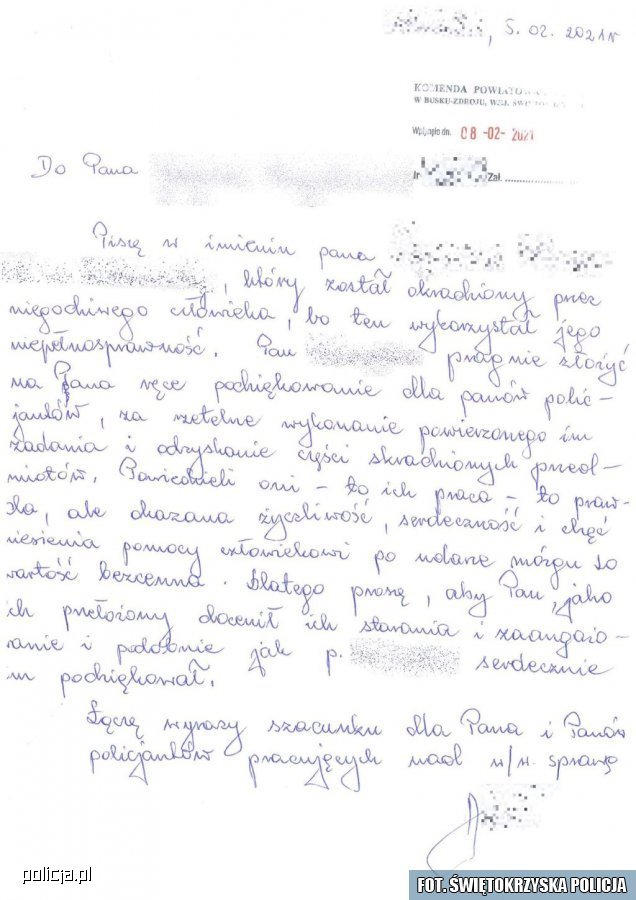 , 5. 02. 2021 r
KOMENDA POWIATOWA
W BUSKU-ZDROJU, WOJ. ŚWIĘTOK
Wpłynęło dn. 08 -02- 2021
Zał.
Do Pana
Piszę w imieniu pana
, który został okradziony przez
niegodziwego człowieka, bo ten wykorzystał jego
niepełnosprawność. Pan pragnie złożyć
na Pana ręce podziękowanie dla panów policj-
jantów, za rzetelne wykonanie powierzonego im
zadania i odzyskanie części skradzionych przed-
miotów. Powiedzieli oni - to ich praca - to praw-
da, ale okazana życzliwość, serdeczność i chęć
niesienia pomocy człowiekowi po udarze mózgu to
wartość bezcenna. Dlatego proszę, aby Pan, jako
ich przełożony docenił ich starania i zaangażo-
wanie i podobnie jak p. serdecznie
im podziękował.
Łączę wyrazy szacunku dla Pana i Panów
policjantów pracujących nad w/w. sprawą
policja.pl
FOT. ŚWIĘTOKRZYSKA POLICJA